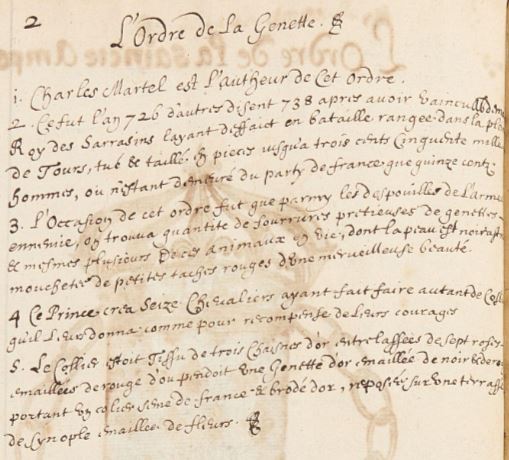 2
L'Ordre de La Genette.
1. Charles Martel est l'autheur de Cet Ordre.
2. Ce fut l'an 726 d'autres disent 738 apres avoir vaincu Abdem
Roy des Sarrasins layant deffaict en bataille rangee dans la plai
de Tours, tué & taillé en pieces jusqu'a trois cents Cinquente mille
hommes, ou n'estant demeuré du party de france que quinze centz.
3. L'Occasion de cet ordre fut que parmy les despouilles de l'Armee
ennemie, on trouva quantite de fourrures pretieuses de genettes
& mesmes plusieurs de ces animaux en vie, dont la peau est noirastre
mouchetee de petites taches rouges d'une merveilleuse beauté.
4 Ce Prince crea Seize Chevaliers ayant fait faire autant de Col
qu'il Leurs donna comme pour recompense de Leurs courages
5. Le Collier estoit Tissu de trois Chaisnes d'or entrelassées de sept roses
emaillées de rouge d'ou pendoit une Genette d'or emaillée de noir &
portant un colier semé de france & brodé d'or, reposée sur une terrasse
de Synople emaillee de fleurs.